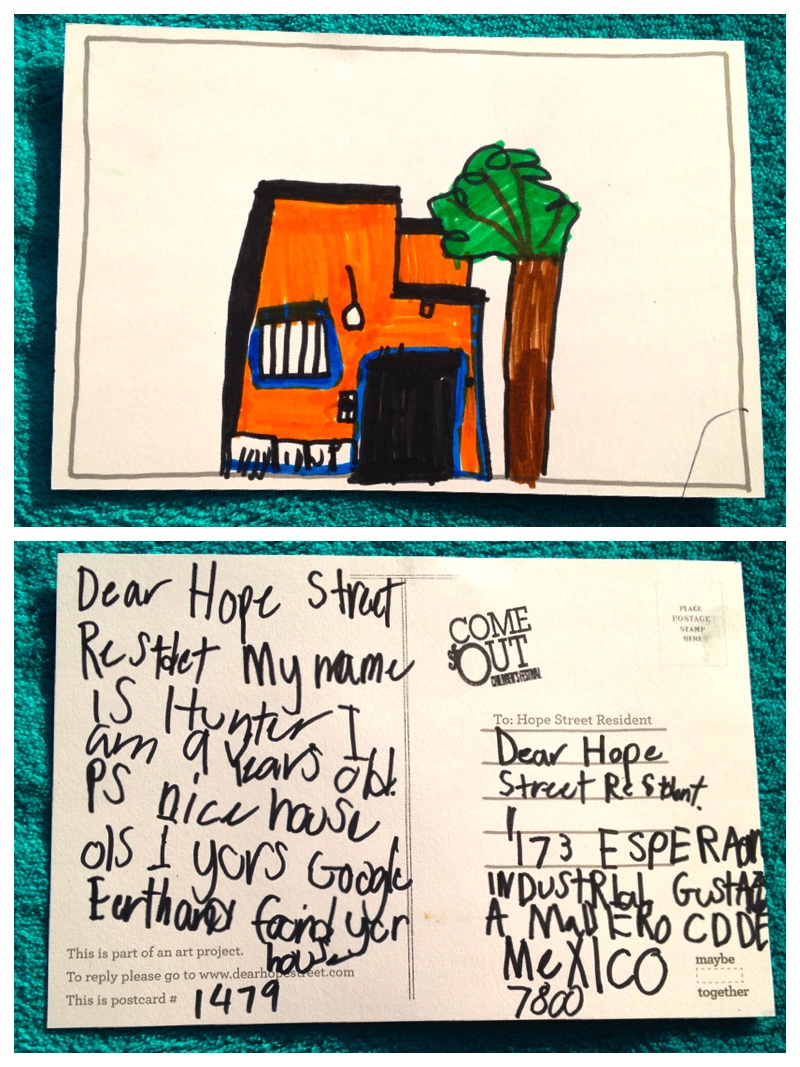 Dear Hope Street
Restdet My name
is Hunter I
am 9 years old.
PS nice house
ols I yors Google
Earth and foond yor
house
This is part of an art project.
To reply please go to www.dearhopestreet.com
This is postcard # 1479
COME
OUT
CHILDREN'S FESTIVAL
PLACE
POSTAGE
STAMP
HERE
To: Hope Street Resident
Dear Hope
Street Restdent.
173 ESPERAon
INDUSTRIAL
A MaDERO CDDE
MeXICO
7800
maybe
together